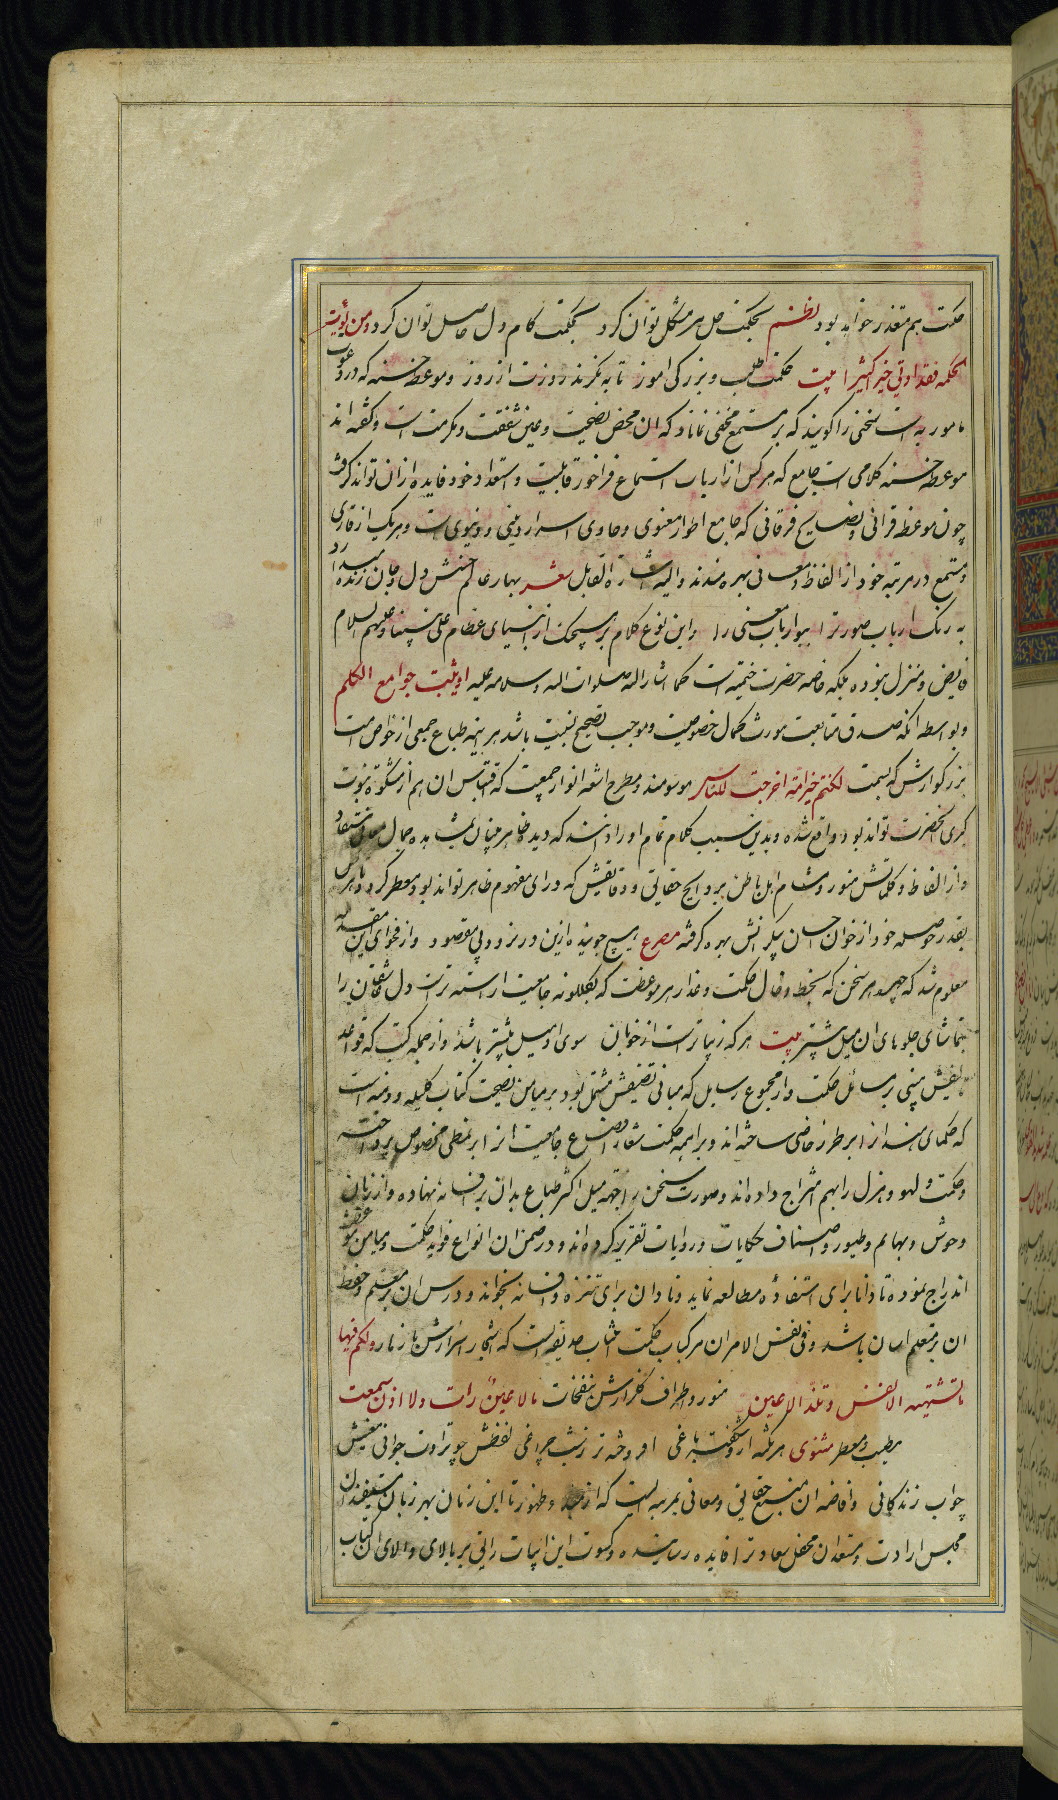 حکمت هم متعذر خواهد بود نظم بحکمت حل هر مشکل توان کرد بحکمت کام دل حاصل توان کرد و من یؤت
الحکمه فقد اوتی خیرا کثیرا بیت حکمت طلب و بزرکی اموز تا به نکرند روزت از روز و موعظه حسنه که در دعوت
مامور به است سخنی را کویند که بر مستمع مخفی نماند که ان محض نصیحت و عین شفقت و مکرمت است و کفته اند
موعظه حسنه کلامی است جامع که هر کس از ارباب استماع فراخور قابلیت و استعداد خود فایده ازان تواند کرفت
چون موعظه قرانی و نصایح فرقانی که جامع اطوار معنوی و حاوی اسرار دینی و دنیوی است و هر یک از قاری
و مستمع در مرتبه خود از الفاظ و معانی بهره مندند و الیه اشارة القایل شعر بهار عالم حسنش دل و جان زنده میدارد
به رنک ارباب صورترا ببو ارباب معنی را و این نوع کلام بر هیچیک از انبیای عظام علی نبینا و علیهم السلام
فایض و منزل نبوده بلکه خاصه حضرت ختمیه است کما اشار الیه صلوات الله و سلامه علیه اوتیت جوامع الکلم
و بواسطه انکه صدق متابعت مورث کمال خصوصیت و موجب تصحیح نسبت باشد هر اینه طباع جمعی از خواص امت
بزرکوارش که بسمت کنتم خیر امة اخرجت للناس موسومند و مطرح اشعه انوار جمعیت که اقتباس ان هم از مشکوة نبوت
کبری انحضرت تواند بود واقع شده و بدین سبب کلام تمام او را دانند که دیده ظاهر بینان بمشاهده جمال معانی مستفاد
از الفاظ و کلماتش منور و مشام اهل باطن بروایح حقایق و دقایقش که ورای مفهوم ظاهر تواند بود معطر کردد تا هر کس
بقدر حوصله خود از خوان احسان بیکرانش بهره کرفته مصرع هیچ جوینده ازین در نرود بی مقصود و از فحوای این مقدمه
معلوم شد که چهره هر سخن که بخط و خال حکمت و عذار هر موعظت که بکلکونه جامعیت اراسته ترست دل عاشقان را
بتماشای جلوهای ان میل بیشتر بیت هر که زیباترست از خوبان سوی او میل بیشتر باشد و از جمله کتب که قواعد
تالیفش مبنی بر مسائل حکمت و از مجموع رسایل که مبانی تصنیفش مشتمل بود بر میامن نصیحت کتاب کلیله و دمنه است
که حکمای هند انرا بر طرز خاصی ساخته اند و براهمه حکمت شعار اوضاع جامعیت انرا بر نمطی مخصوص پرداخته
و حکمت و لهو و هزل را بهم امتزاج داده اند و صورت سخن را جهه میل اکثر طباع بدان بر افسانه نهاده و از زبان
وحوش و بهایم و طیور و اصناف حکایات و روایات تقریر کرده اند و در ضمن ان انواع فواید حکمت و میامن موعظت
اندراج نموده تا دانا برای استفاده مطالعه نماید و نادان برای تنزه و افسانه بخواند و درس ان بر معلم و حفظ
ان بر متعلم اسان باشد و فی نفس الامر ان مر کباب حکمت انتساب حدیقه ایست که اشجار اسرارش بازهار و لکم فیها
ما تشتهیه الانفس و تلذ الاعین منور و اطراف کلزارش بنفحات ما لا عین رات و لا اذن سمعت
مطیب و معطر مثنوی هر نکته ازو شکفته باغی افروخته تر زشب چراغی لفظش چو تراوت جوانی معنیش
چو اب زندکانی و افاضه ان منبع حقایق و معانی بمرتبه ایست که از مبداء ظهور تا این زمان بهر زبان مستفیدان
مجلس ارادت و مستعدان محفل سعادترا فایده رسانیده و کسوت این ابیات راتبی بر بالای والای ان کتاب